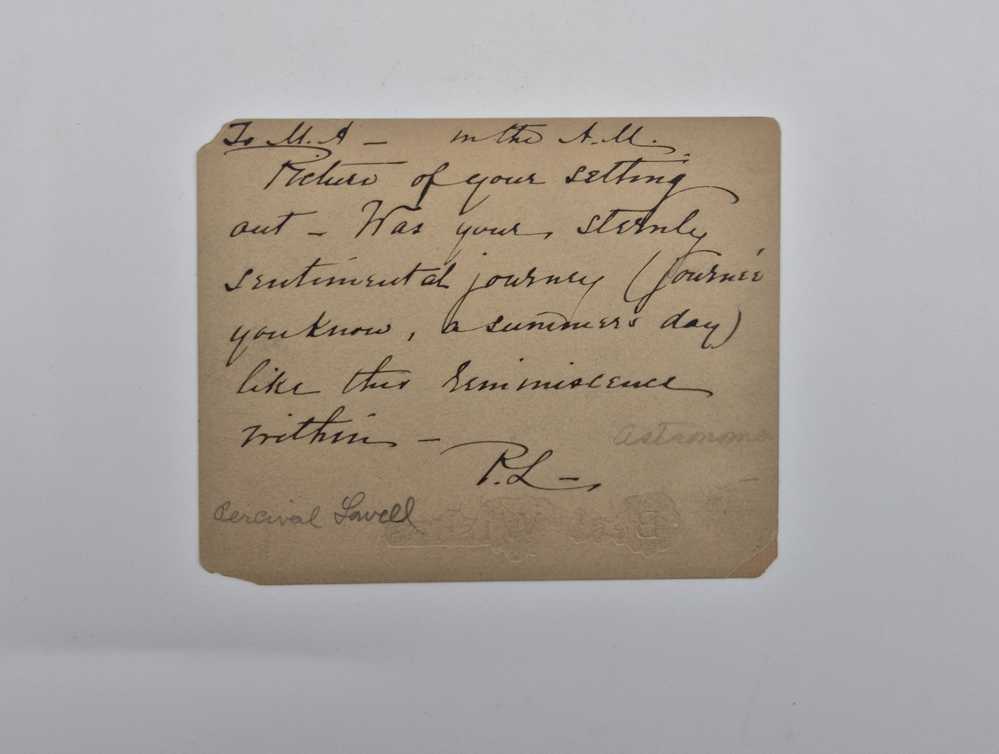 To M.A — in the A.M.
Picture of your setting
out — Was your sternly
sentimental journey (journée
you know, a summer's day)
like this reminiscence
within —
Astronome
P.L —
Percival Lowell